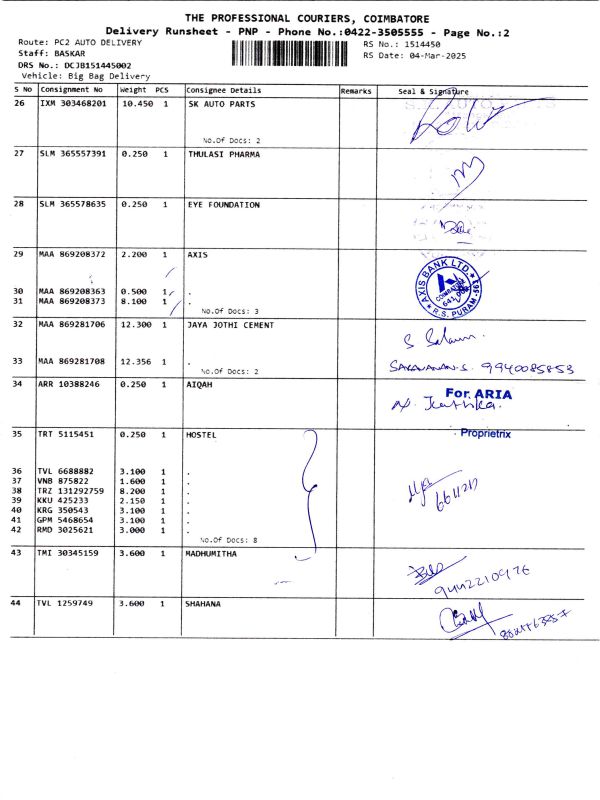 THE PROFESSIONAL COURIERS, COIMBATORE
Delivery Runsheet - PNP - Phone No.:0422-3505555 - Page No.:2
Route: PC2 AUTO DELIVERY
RS No.: 1514450
Staff: BASKAR
RS Date: 04-Mar-2025
DRS No.: DCJB151445002
Vehicle: Big Bag Delivery
S No Consignment No Weight PCS Consignee Details Remarks Seal & Signature
26 IXM 303468201 10.450 1 SK AUTO PARTS
No.Of Docs: 2
27 SLM 365557391 0.250 1 THULASI PHARMA
28 SLM 365578635 0.250 1 EYE FOUNDATION
29 MAA 869208372 2.200 1 AXIS
AXIS BANK LTD
COIMBATORE
R.S. PURAM
30 MAA 869208363 0.500 1 .
31 MAA 869208373 8.100 1 .
No.Of Docs: 3
32 MAA 869281706 12.300 1 JAYA JOTHI CEMENT
33 MAA 869281708 12.356 1 .
SARAVANAN.S. 9940085853
No.Of Docs: 2
34 ARR 10388246 0.250 1 AIQAH
For ARIA
Proprietrix
35 TRT 5115451 0.250 1 HOSTEL
36 TVL 6688882 3.100 1 .
37 VNB 875822 1.600 1 .
38 TRZ 131292759 8.200 1 .
39 KKU 425233 2.150 1 .
40 KRG 350543 3.100 1 .
41 GPM 5468654 3.100 1 .
42 RMD 3025621 3.000 1 .
No.Of Docs: 8
43 TMI 30345159 3.600 1 MADHUMITHA
9442210976
44 TVL 1259749 3.600 1 SHAHANA